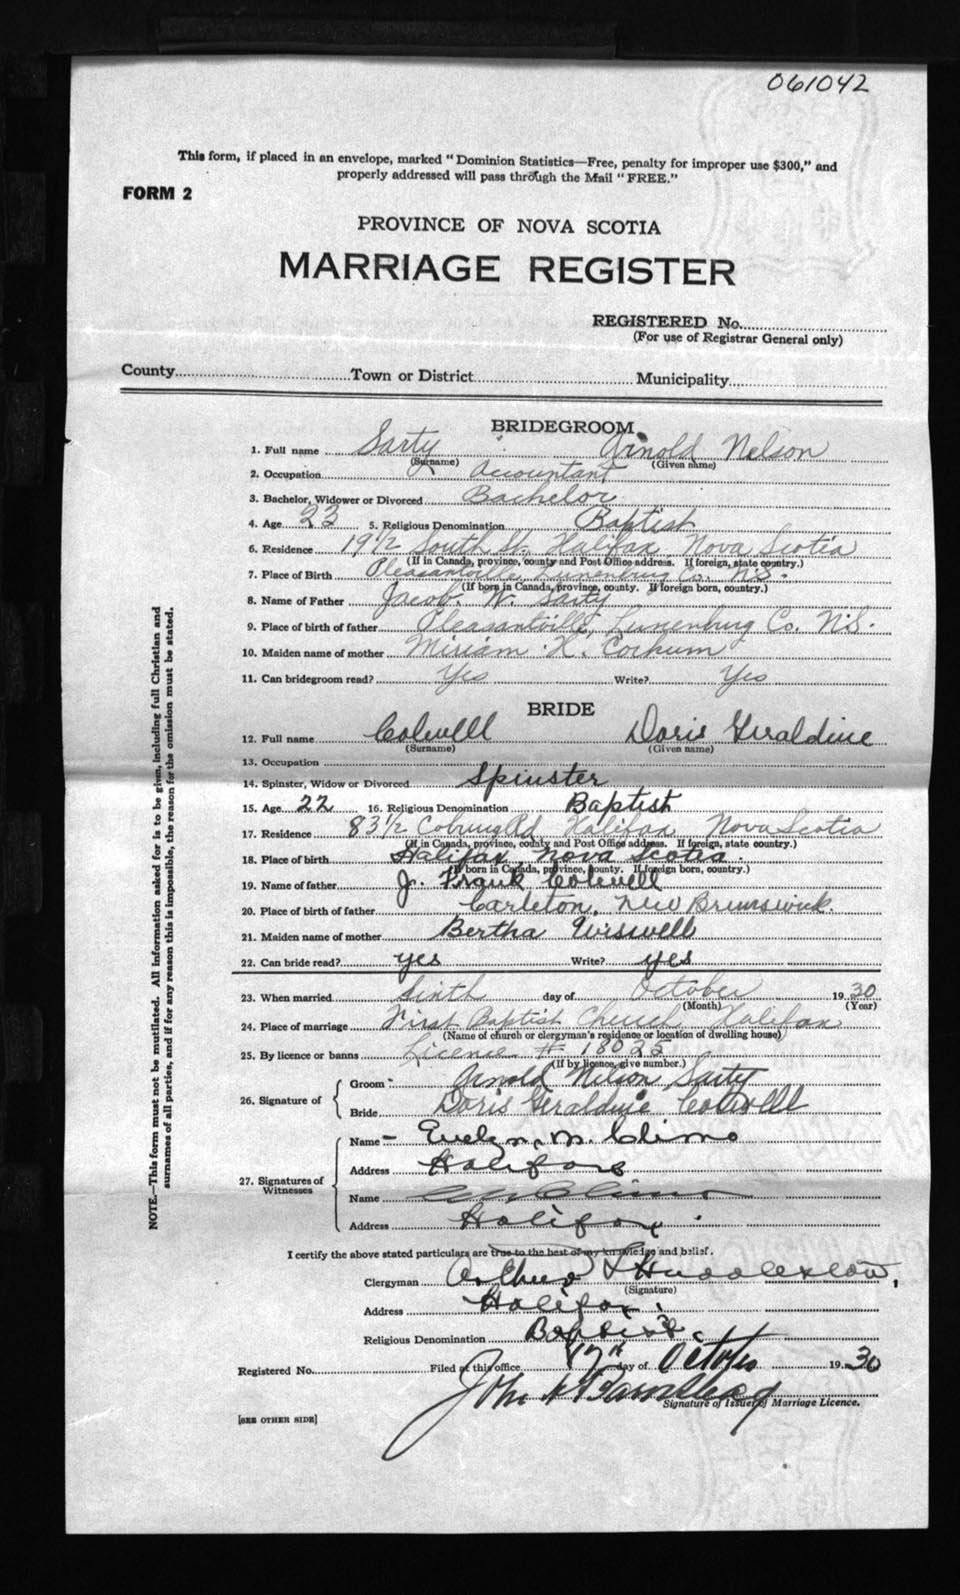 061042
This form, if placed in an envelope, marked "Dominion Statistics—Free, penalty for improper use $300," and
properly addressed will pass through the Mail "FREE."
FORM 2
PROVINCE OF NOVA SCOTIA
MARRIAGE REGISTER
REGISTERED No.
(For use of Registrar General only)
County Town or District Municipality
BRIDEGROOM
1. Full name Sarty Arnold Nelson
(Surname) (Given name)
2. Occupation Accountant
3. Bachelor, Widower or Divorced Bachelor
4. Age 23 5. Religious Denomination Baptist
6. Residence 19 1/2 South St. Halifax Nova Scotia
(If in Canada, province, county and Post Office address. If foreign, state country.)
7. Place of Birth Pleasantville, Lunenburg Co. N.S.
(If born in Canada, province, county. If foreign born, country.)
8. Name of Father Jacob W. Sarty
9. Place of birth of father Pleasantville, Lunenburg Co. N.S.
10. Maiden name of mother Miriam H. Corkum
11. Can bridegroom read? Yes Write? Yes
BRIDE
12. Full name Colwell Doris Geraldine
(Surname) (Given name)
13. Occupation
14. Spinster, Widow or Divorced Spinster
15. Age 22 16. Religious Denomination Baptist
17. Residence 83 1/2 Coburg Rd Halifax Nova Scotia
(If in Canada, province, county and Post Office address. If foreign, state country.)
18. Place of birth Halifax, Nova Scotia.
(If born in Canada, province, county. If foreign born, country.)
19. Name of father J. Frank Colwell
20. Place of birth of father Carleton, New Brunswick.
21. Maiden name of mother Bertha Wiswell
22. Can bride read? yes Write? yes
23. When married Sixth day of October 1930
(Month) (Year)
24. Place of marriage First Baptist Church Halifax
(Name of church or clergyman's residence or location of dwelling house)
25. By licence or banns License # 18025
(If by licence, give number.)
26. Signature of
Groom Arnold Nelson Sarty
Bride Doris Geraldine Colwell
27. Signatures of Witnesses
Name Evelyn M. Climo
Address Halifax
Name Climo
Address Halifax
I certify the above stated particulars are true to the best of my knowledge and belief.
Clergyman Arthur Huddleston,
(Signature)
Address Halifax
Religious Denomination Baptist
Registered No. Filed at this office 17th day of October 1930
John
Signature of Issuer of Marriage Licence.
[SEE OTHER SIDE]
NOTE.—This form must not be mutilated. All information asked for is to be given, including full Christian and
surnames of all parties, and if for any reason this is impossible, the reason for the omission must be stated.